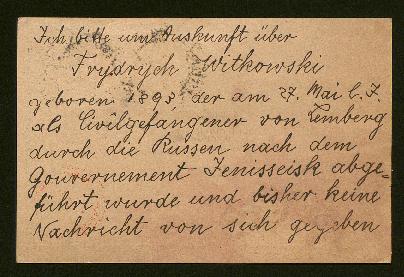 Ich bitte um Auskunft über
Frydrych Witkowski
geboren 1893, der am 27. Mai l. J.
als Civilgefangener von Lemberg
durch die Russen nach dem
Gouvernement Jenisseisk abge=
führt wurde und bisher keine
Nachricht von sich gegeben